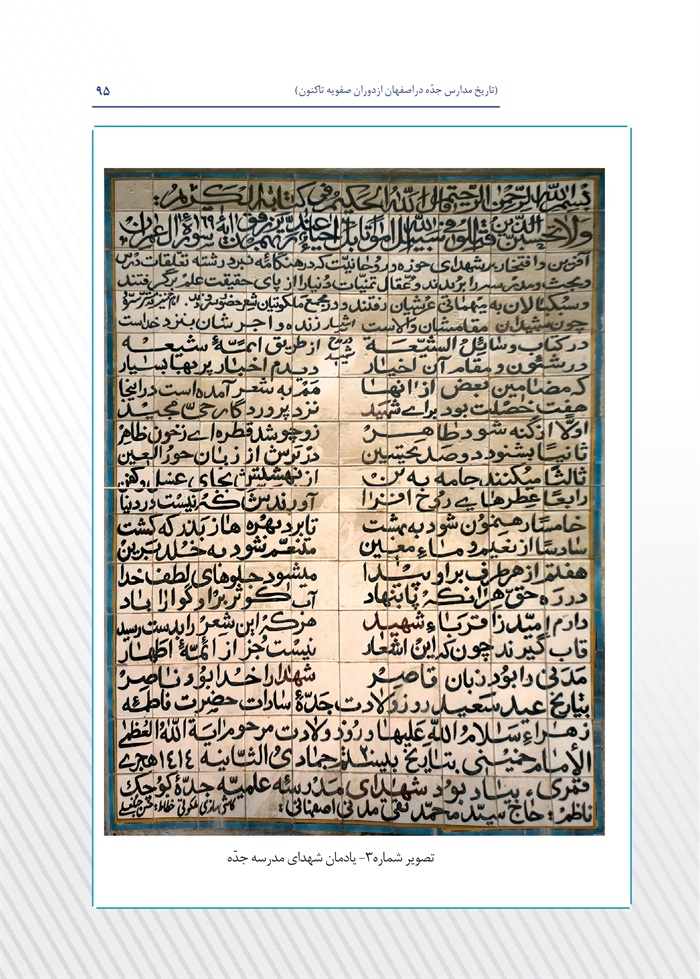 (تاریخ مدارس جدّه در اصفهان از دوران صفویه تاکنون)
۹۵
بسم الله الرحمن الرحیم قال الله الحکیم فی کتابه الکریم:
ولا تحسبن الذین قتلوا فی سبیل الله امواتا بل احیاء عند ربهم یرزقون آیه ۱۶۹ سورة آل عمران
آفرین و افتخار بر شهدای حوزه و روحانیت که در هنگامه نبرد رشته تعلقات درس
و بحث و مدرسه را بریدند و عقال تمنیات دنیا را از پای حقیقت علم برگرفتند
و سبکبالان به میهمانی عرشیان رفتند و در مجمع ملکوتیان شعر حضور سروده‌اند. امام خمینی قدس سره
چون شهیدان مقامشان والاست اشهد زنده و اجرشان بنزد خداست
در کتاب وسائل الشیعه از طریق ائمهٔ شیعه
در شئون و مقام آن اخیار دیدم اخبار پربها بسیار
که مضامین بعض از آنها هم به شعر آمده است در اینجا
هفت خصلت بود برای شهید نزد پروردگار حیّ مجید
اولاً از گنه شود طاهر زو چو شد قطره‌ای ز خون ظاهر
ثانیاً بشنود دو صد تحسین در برش از زبان حور العین
ثالثاً میکنند جامه به تن از بهشتش بجای غسل و کفن
رابعاً عطرهای روح افزا آورندش که نیست در دنیا
خامساً رهنمون شود به بهشت تا برد بهره‌ها ز بذر که کشت
سادساً از نعیم و ماء معین متنعم شود به خلد برین
هفتم از هر طرف بر او پیدا میشود جلوهای لطف خدا
در ره حق هر آنکه پا بنهاد آب کوثر بر او گوارا باد
دارم امید ز اقرباء شهید هر که را این شعر را بدست رسید
قاب گیرند چون که این اشعار نیست جز از ائمهٔ اطهار
مدنی را بود زبان قاصر شهدا را خدا بود ناصر
بتاریخ عید سعید روز ولادت جدّهٔ سادات حضرت فاطمه
زهراء سلام الله علیها و روز ولادت مرحوم آیة الله العظمی
الامام خمینی بتاریخ بیستم جمادی الثانیه ۱۴۱۴ هجری
قمری، بیاد بود شهدای مدرسه علمیه جدّهٔ کوچک
ناظم: حاج سیّد محمد تقی مدنی اصفهانی:
تصویر شماره۳- یادمان شهدای مدرسه جدّه